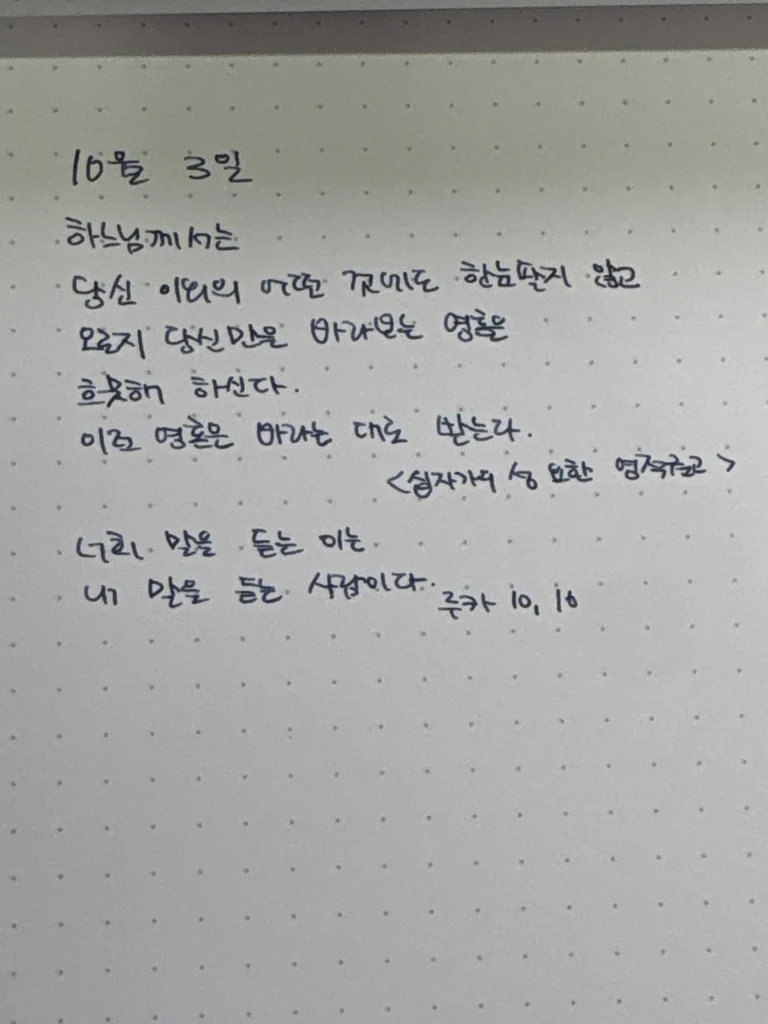 10월 3일
하느님께서는
당신 이외의 어떤 것에도 한눈팔지 않고
오로지 당신만을 바라보는 영혼을
흐뭇해 하신다.
이런 영혼은 바라는 대로 받는다.
<십자가의 성 요한 영적권고>
너희 말을 듣는 이는
내 말을 듣는 사람이다. 루카 10, 16